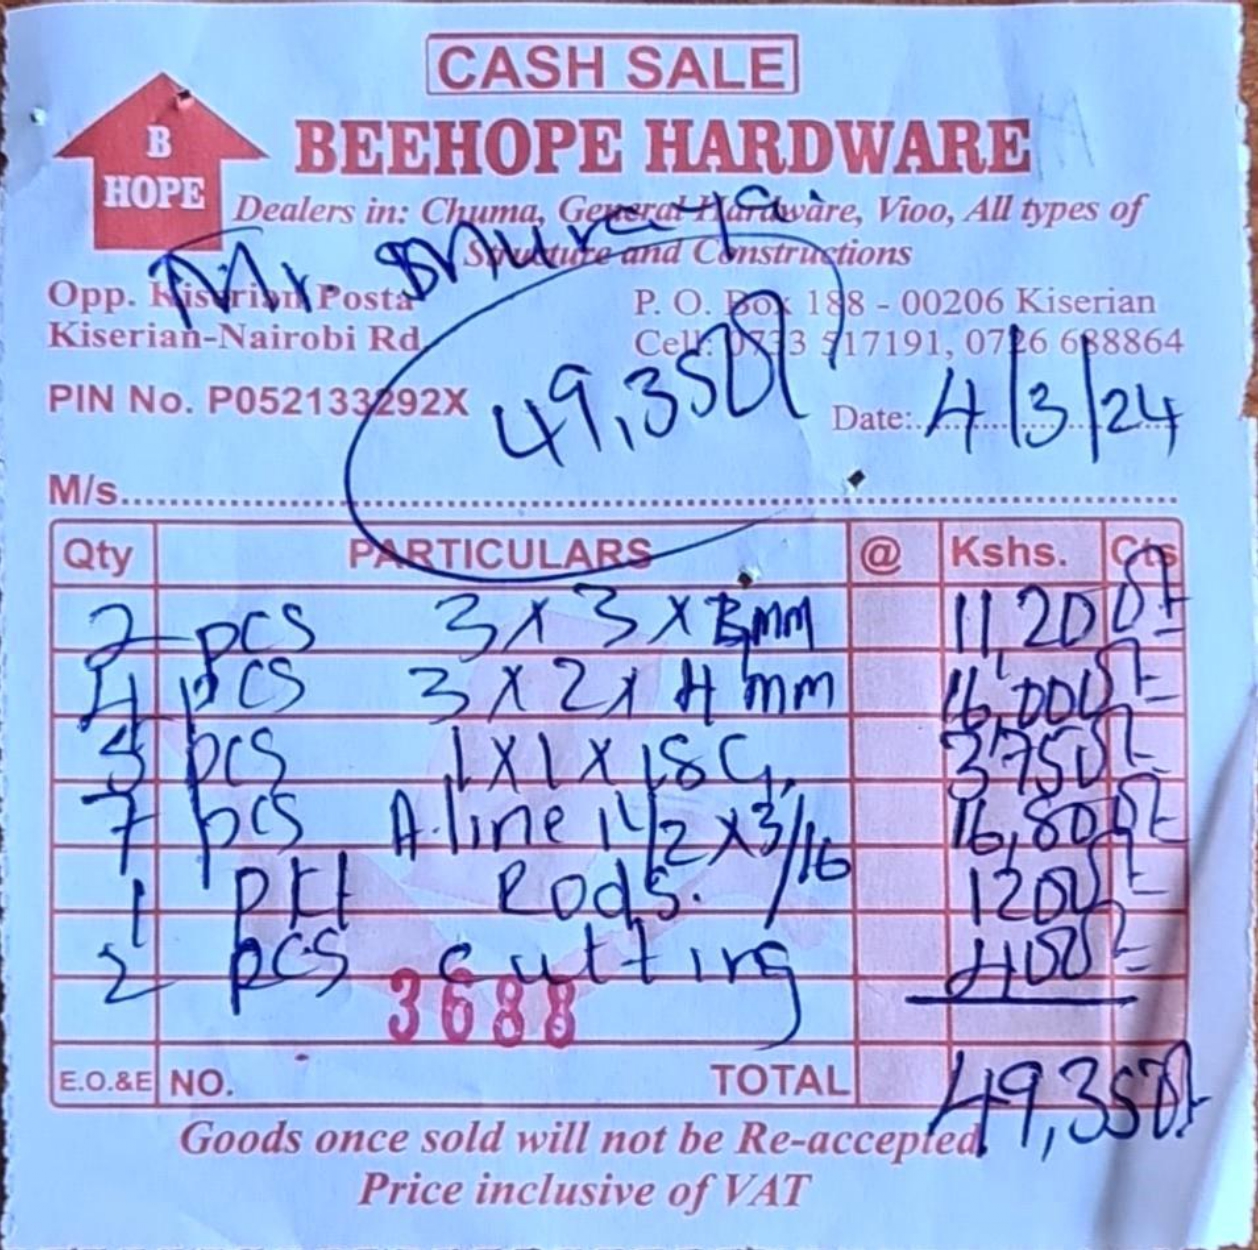 CASH SALE
B
HOPE
BEEHOPE HARDWARE
Dealers in: Chuma, General Hardware, Vioo, All types of
Structure and Constructions
Mr. Muraya
Opp. Kiserian Posta
Kiserian-Nairobi Rd
P. O. Box 188 - 00206 Kiserian
Cell: 0733 517191, 0726 688864
PIN No. P052133292X
49,350/-
Date: 4/3/24
M/s
Qty PARTICULARS @ Kshs. Cts
2 pcs 3 x 3 x 3mm 11,200/-
4 pcs 3 x 2 x 4mm 16,000/-
pcs 1 x 1 x 18G. 3750/-
7 pcs A-line 1 1/2 x 3/16 16,800/-
1 pkt Rods. 1200/-
2 pcs cutting 400/-
3688
E.O.&E NO. TOTAL 49,350/-
Goods once sold will not be Re-accepted
Price inclusive of VAT